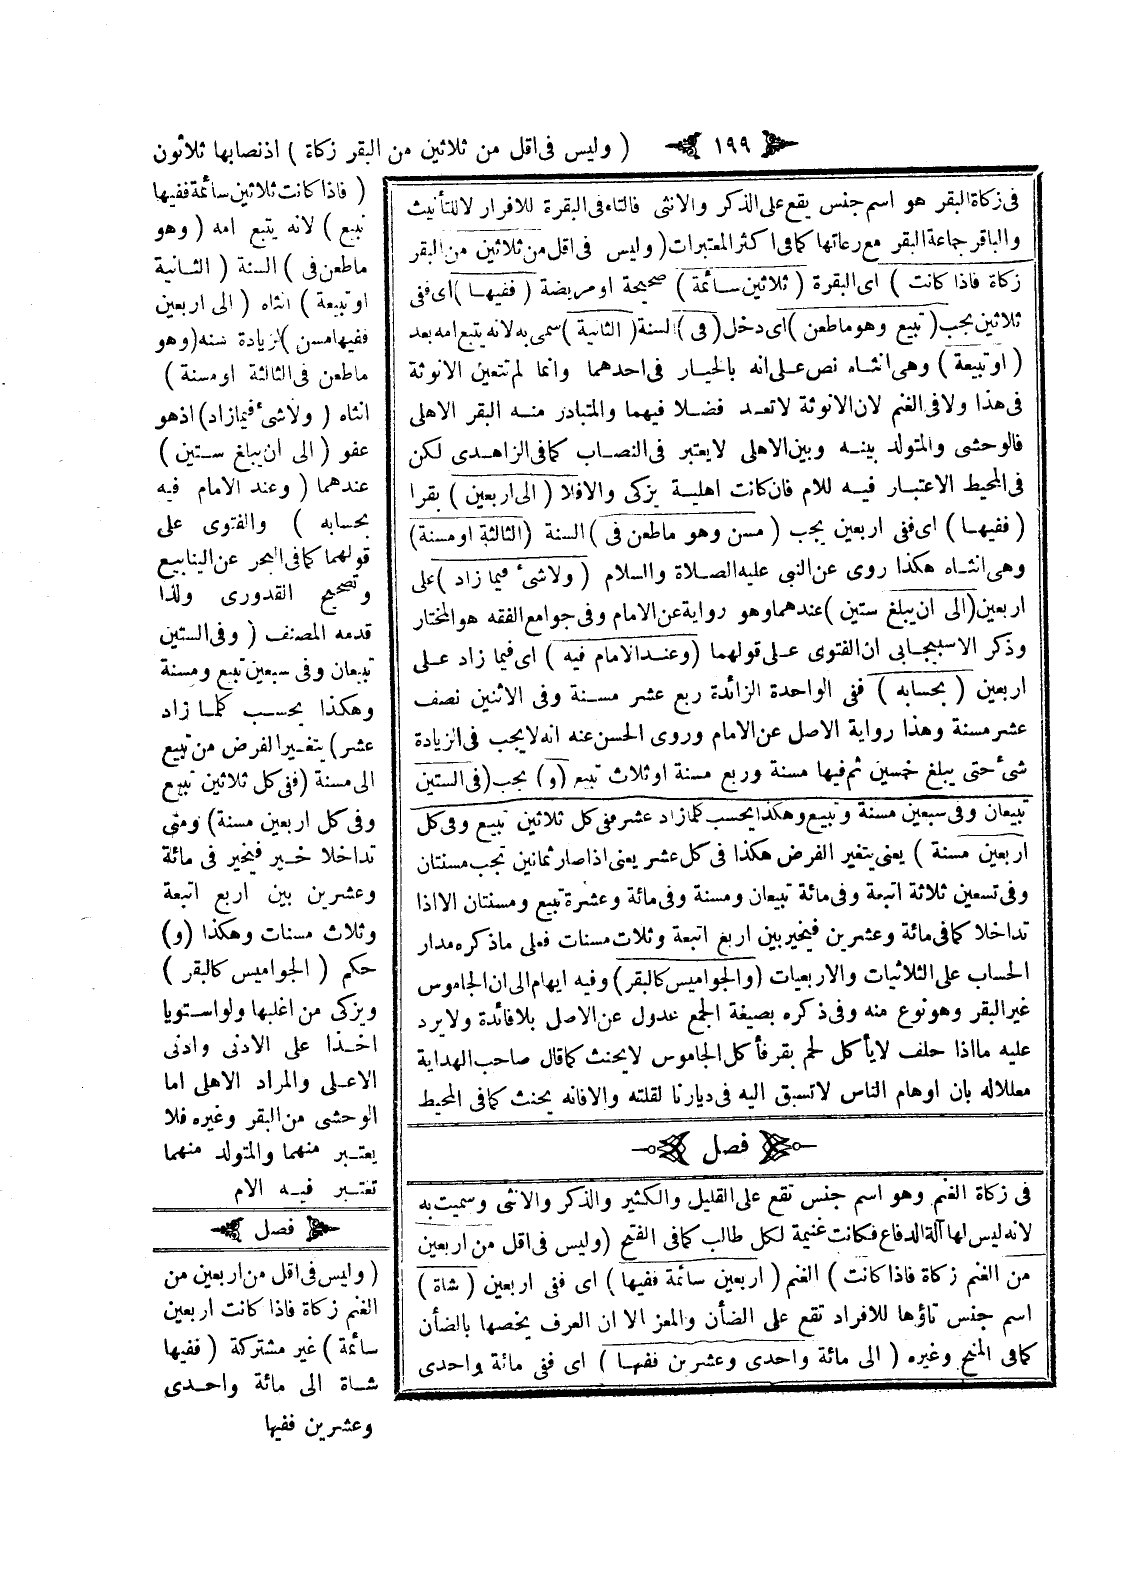 ١٩٩
فى زكاة البقر هو اسم جنس يقع على الذكر والانثى فالتاء فى البقرة للافرار لا للتأنيث
والباقر جماعة البقر مع رعاتها كما فى اكثر المعتبرات ( وليس فى اقل من ثلاثين من البقر
زكاة فاذا كانت ) اى البقرة ( ثلاثين سائمة ) صحيحة او مريضة ( ففيها ) اى ففى
ثلاثين يجب ( تبيع وهو ماطعن ) اى دخل ( فى ) السنة ( الثانية ) سمى به لانه يتبع امه بعد
( او تبيعة ) وهى انثاه نص على انه بالخيار فى احدهما وانما لم تتعين الانوثة
فى هذا ولا فى الغنم لان الانوثة لا تعد فضلا فيهما والمتبادر منه البقر الاهلى
فالوحشى والمتولد بينه وبين الاهلى لا يعتبر فى النصاب كما فى الزاهدى لكن
فى المحيط الاعتبار فيه للام فان كانت اهلية يزكى والافلا ( الى اربعين ) بقرا
( ففيها ) اى ففى اربعين يجب ( مسن وهو ماطعن فى ) السنة ( الثالثة او مسنة )
وهى انثاه هكذا روى عن النبى عليه الصلاة والسلام ( ولا شئ فيما زاد ) على
اربعين ( الى ان يبلغ ستين ) عندهما وهو رواية عن الامام وفى جوامع الفقه هو المختار
وذكر الاسبيجابى ان الفتوى على قولهما ( وعند الامام فيه ) اى فيما زاد على
اربعين ( بحسابه ) ففى الواحدة الزائدة ربع عشر مسنة وفى الاثنين نصف
عشر مسنة وهذا رواية الاصل عن الامام وروى الحسن عنه انه لا يجب فى الزيادة
شئ حتى يبلغ خمسين ثم فيها مسنة وربع مسنة او ثلاث تبيع ( و ) يجب ( فى الستين
تبيعان وفى سبعين مسنة وتبيع وهكذا يحسب كلما زاد عشر ففى كل ثلاثين تبيع وفى كل
اربعين مسنة ) يعنى يتغير الفرض هكذا فى كل عشر يعنى اذا صار ثمانين تجب مسنتان
وفى تسعين ثلاثة اتبعة وفى مائة تبيعان ومسنة وفى مائة وعشرة تبيع ومسنتان الا اذا
تداخلا كما فى مائة وعشرين فيخير بين اربع اتبعة وثلاث مسنات فعلى ما ذكره مدار
الحساب على الثلاثيات والاربعيات ( والجواميس كالبقر ) وفيه ايهام الى ان الجاموس
غير البقر وهو نوع منه وفى ذكره بصيغة الجمع عدول عن الاصل بلا فائدة ولا يرد
عليه ما اذا حلف لا يأكل لحم بقر فأكل الجاموس لا يحنث كما قال صاحب الهداية
معللا له بان اوهام الناس لا تسبق اليه فى ديارنا لقلته والا فانه يحنث كما فى المحيط
فصل
فى زكاة الغنم وهو اسم جنس تقع على القليل والكثير والذكر والانثى وسميت به
لانه ليس لها آلة الدفاع فكانت غنيمة لكل طالب كما فى الفتح ( وليس فى اقل من اربعين
من الغنم زكاة فاذا كانت ) الغنم ( اربعين سائمة ففيها ) اى ففى اربعين ( شاة )
اسم جنس تاؤها للافراد تقع على الضأن والمعز الا ان العرف يخصها بالضأن
كما فى المنح وغيره ( الى مائة واحدى وعشرين ففيها ) اى ففى مائة واحدى
( وليس فى اقل من ثلاثين من البقر زكاة ) اذ نصابها ثلاثون
( فاذا كانت ثلاثين سائمة ففيها
تبيع ) لانه يتبع امه ( وهو
ماطعن فى ) السنة ( الثانية
او تبيعة ) انثاه ( الى اربعين
ففيها مسن ) لزيادة سنه ( وهو
ماطعن فى الثالثة او مسنة )
انثاه ( ولا شئ فيما زاد ) اذ هو
عفو ( الى ان يبلغ ستين )
عندهما ( وعند الامام فيه
بحسابه ) والفتوى على
قولهما كما فى البحر عن الينابيع
وتصحيح القدورى ولذا
قدمه المصنف ( وفى الستين
تبيعان وفى سبعين تبيع ومسنة
وهكذا يحسب كلما زاد
عشر ) يتغير الفرض من تبيع
الى مسنة ( ففى كل ثلاثين تبيع
وفى كل اربعين مسنة ) ومتى
تداخلا خير فيخير فى مائة
وعشرين بين اربع اتبعة
وثلاث مسنات وهكذا ( و )
حكم ( الجواميس كالبقر )
ويزكى من اغلبها ولو استويا
اخذا على الادنى وادنى
الاعلى والمراد الاهلى اما
الوحشى من البقر وغيره فلا
يعتبر منهما والمتولد منهما
تعتبر فيه الام
فصل
( وليس فى اقل من اربعين من
الغنم زكاة فاذا كانت اربعين
سائمة ) غير مشتركة ( ففيها
شاة الى مائة واحدى
وعشرين ففيها